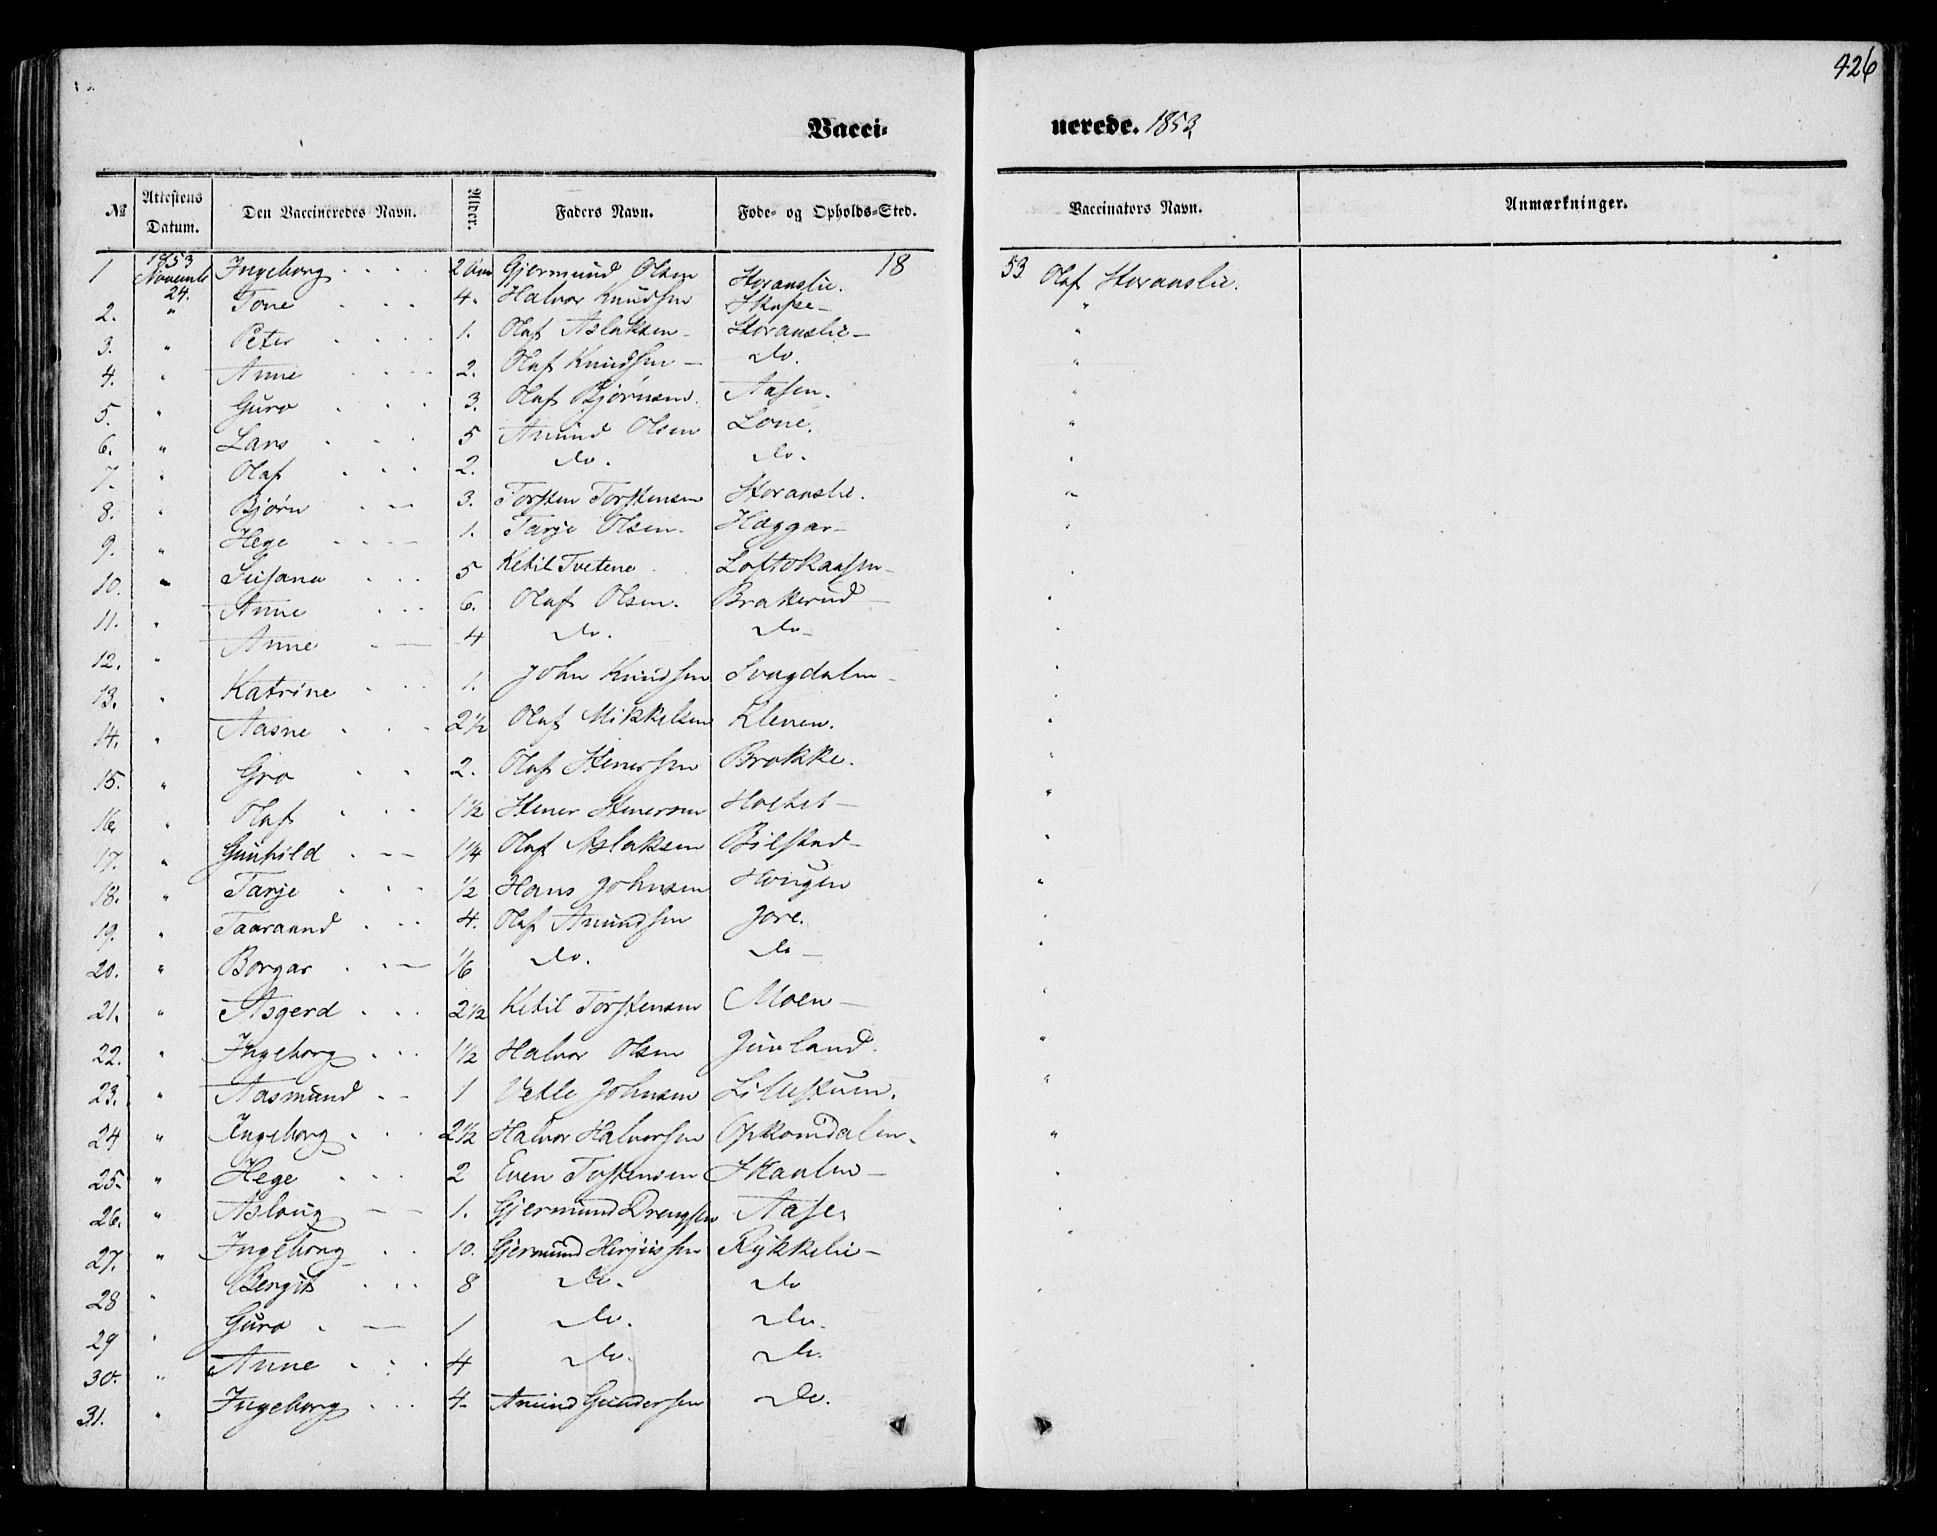 426
Vacci= nerede. 1853
№ Attestens Datum. Den Vaccineredes Navn. Alder. Faders Navn. Føde- og Opholds-Sted. Vaccinators Navn. Anmærkninger.
18 53
1 1853 Novemb 24. Ingeborg 2 Gjermund Olsen Storanslie. Olaf Storanslie.
2. " Tone 4. Halvor Knudsen "
3. " Peter 1. Olaf Aslaksen - Storanslie - "
4. " Anne 2. Olaf Knudsen - do. "
5. " Guro 3. Olaf Bjørnsen. Aasen. "
6. " Lars 5 Amund Olsen Lone. "
7. " Olaf 2. do. do. "
8. " Bjørn 3. Torsten Torstensen Storanslie. "
9. " Hege 1. Tarje Olsen. Hæggar - "
10. " Susane 5 Ketil Tvetene Loftskaasen - "
11. " Anne 6. Olaf Olsen. Brakerud - "
12. " Anne 4 do. do - "
13. " Katrine 1. John Knudsen Svagdalen - "
14. " Aasne 2 1/2 Olaf Mikkelsen Klenen. "
15. " Gro 2. Olaf Stenersen Brokke. "
16. " Olaf 1 1/2 Stener Stenersen Holtet - "
17. " Gunhild 1 1/4 Olaf Aslaksen Bilstad - "
18. " Tarje 1/2 Hans Johnsen Hougen "
19. " Taaraand 4. Olaf Amundsen Jore. "
20. " Borgar 1/6 do. do - "
21. " Asgerd 2 1/2 Ketil Torstensen Moen - "
22. " Ingeborg 1 1/2 Halvor Olsen Juvland. "
23. " Aasmund 1 Vetle Johnsen Lillestuen. "
24 " Ingeborg 2 1/2 Halvor Halvorsen Opkomdalen. "
25. " Hege 2 Even Tostensen Skaalen - "
26. " Aslaug 1. Gjermund Drengsen Aase. "
27. " Ingeborg 10. Gjermund Herjussen Rykkelie - "
28 " Bergit 8 do. do "
29 " Guro 1 do. do.
30. " Anne 4 do. do.
31. " Ingeborg 4. Amund Gundersen do.